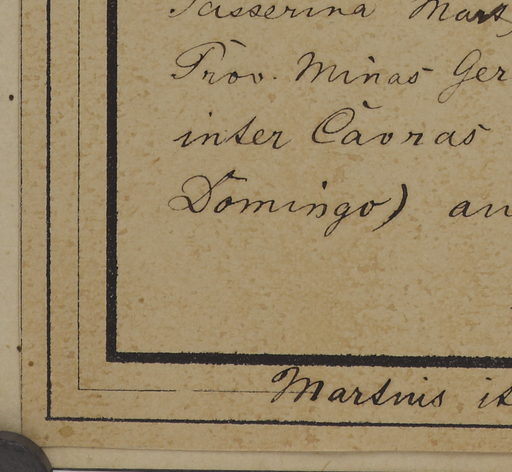 Passerina Mart
Prov. Minas Ger
inter Càvras
Domingo) an
Martius it